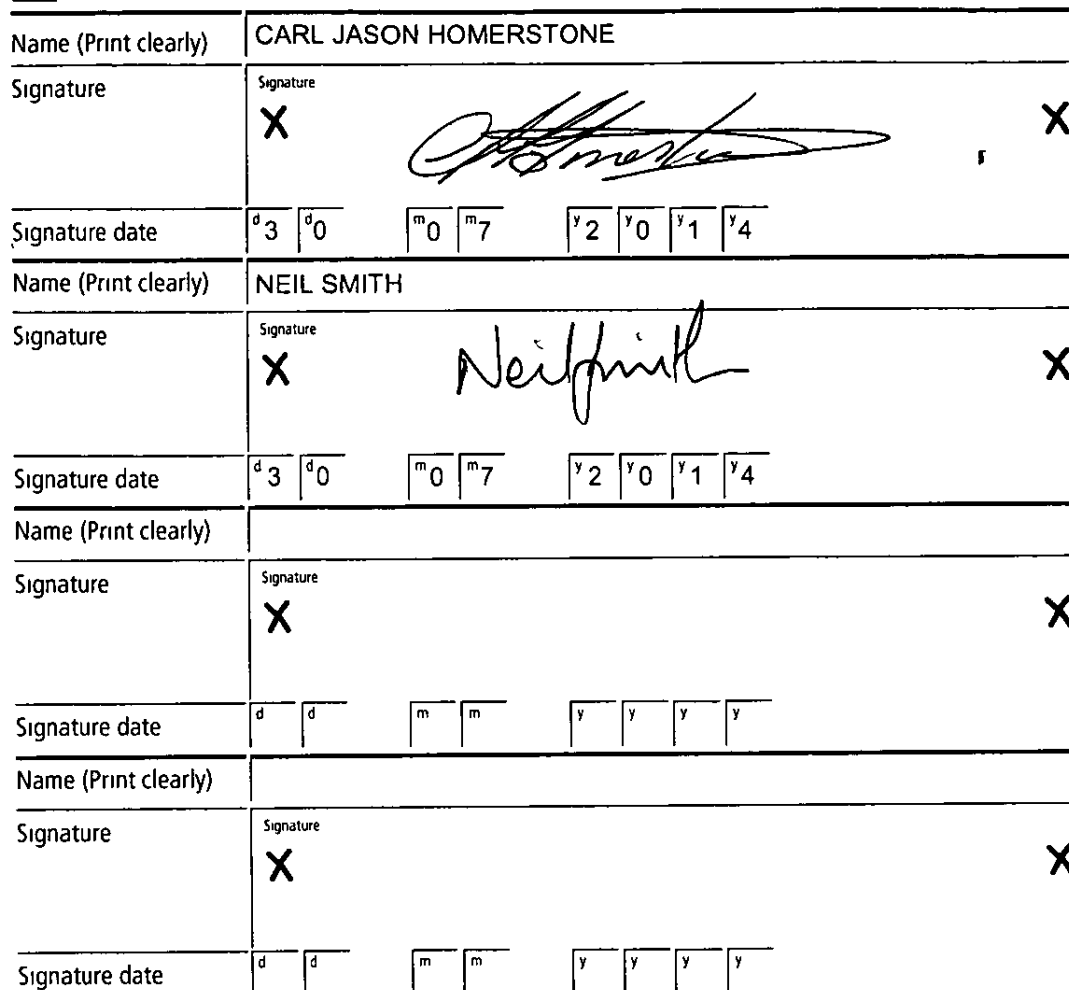 Name (Print clearly) CARL JASON HOMERSTONE
Signature Signature
X X
Signature date d3 d0 m0 m7 y2 y0 y1 y4
Name (Print clearly) NEIL SMITH
Signature Signature
X Neil Smith X
Signature date d3 d0 m0 m7 y2 y0 y1 y4
Name (Print clearly)
Signature Signature
X X
Signature date d d m m y y y y
Name (Print clearly)
Signature Signature
X X
Signature date d d m m y y y y